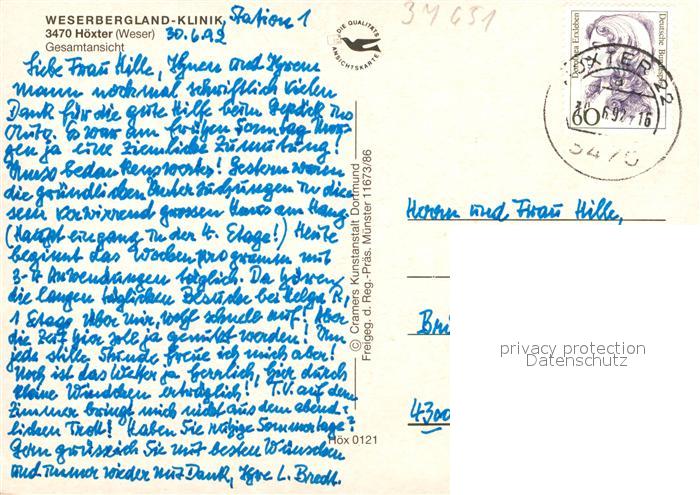 WESERBERGLAND-KLINIK Station 1
3470 Höxter (Weser) 30.6.92
Gesamtansicht
Liebe Frau Hille, Ihnen und Ihrem
Mann nochmal schriftlich vielen
Dank für die gute Hilfe beim Gepäck ins
Auto. Es war am frühen Sonntag Mor-
gen ja eine ziemliche Zumutung!
Muss bedankens wert! Gestern waren
die gründlichen Untersuchungen in die-
sem verwirrend grossen Haus am Hang
(Haupteingang in der 4. Etage!) Heute
beginnt das Wochenprogramm mit
3-4 Anwendungen täglich. Da hören
die langen täglichen Besuche bei Helga R,
1 Etage über mir, wohl schnell auf! Aber
die Zeit hier soll ja genützt werden! Um
jede stille Stunde freue ich mich aber!
Noch ist das Wetter ja herrlich, hier durch
kleine Windchen erträglich! T.V. auf dem
Zimmer bringt mich nicht aus dem abend-
lichen Trott! Haben Sie ruhige Sommertage?
Gern grüsse ich Sie mit besten Wünschen
und immer wieder mit Dank, Ihre L. Bredt.
DIE QUALITÄTS
ANSICHTSKARTE
34 651
Dorothea Erxleben
Deutsche Bundespost
60
HÖXTER 22
30.6.92-16
3470
© Cramers Kunstanstalt Dortmund
Freigeg. d. Reg.-Präs. Münster 11673/86
Höx 0121
Herrn und Frau Hille,
4300
privacy protection
Datenschutz